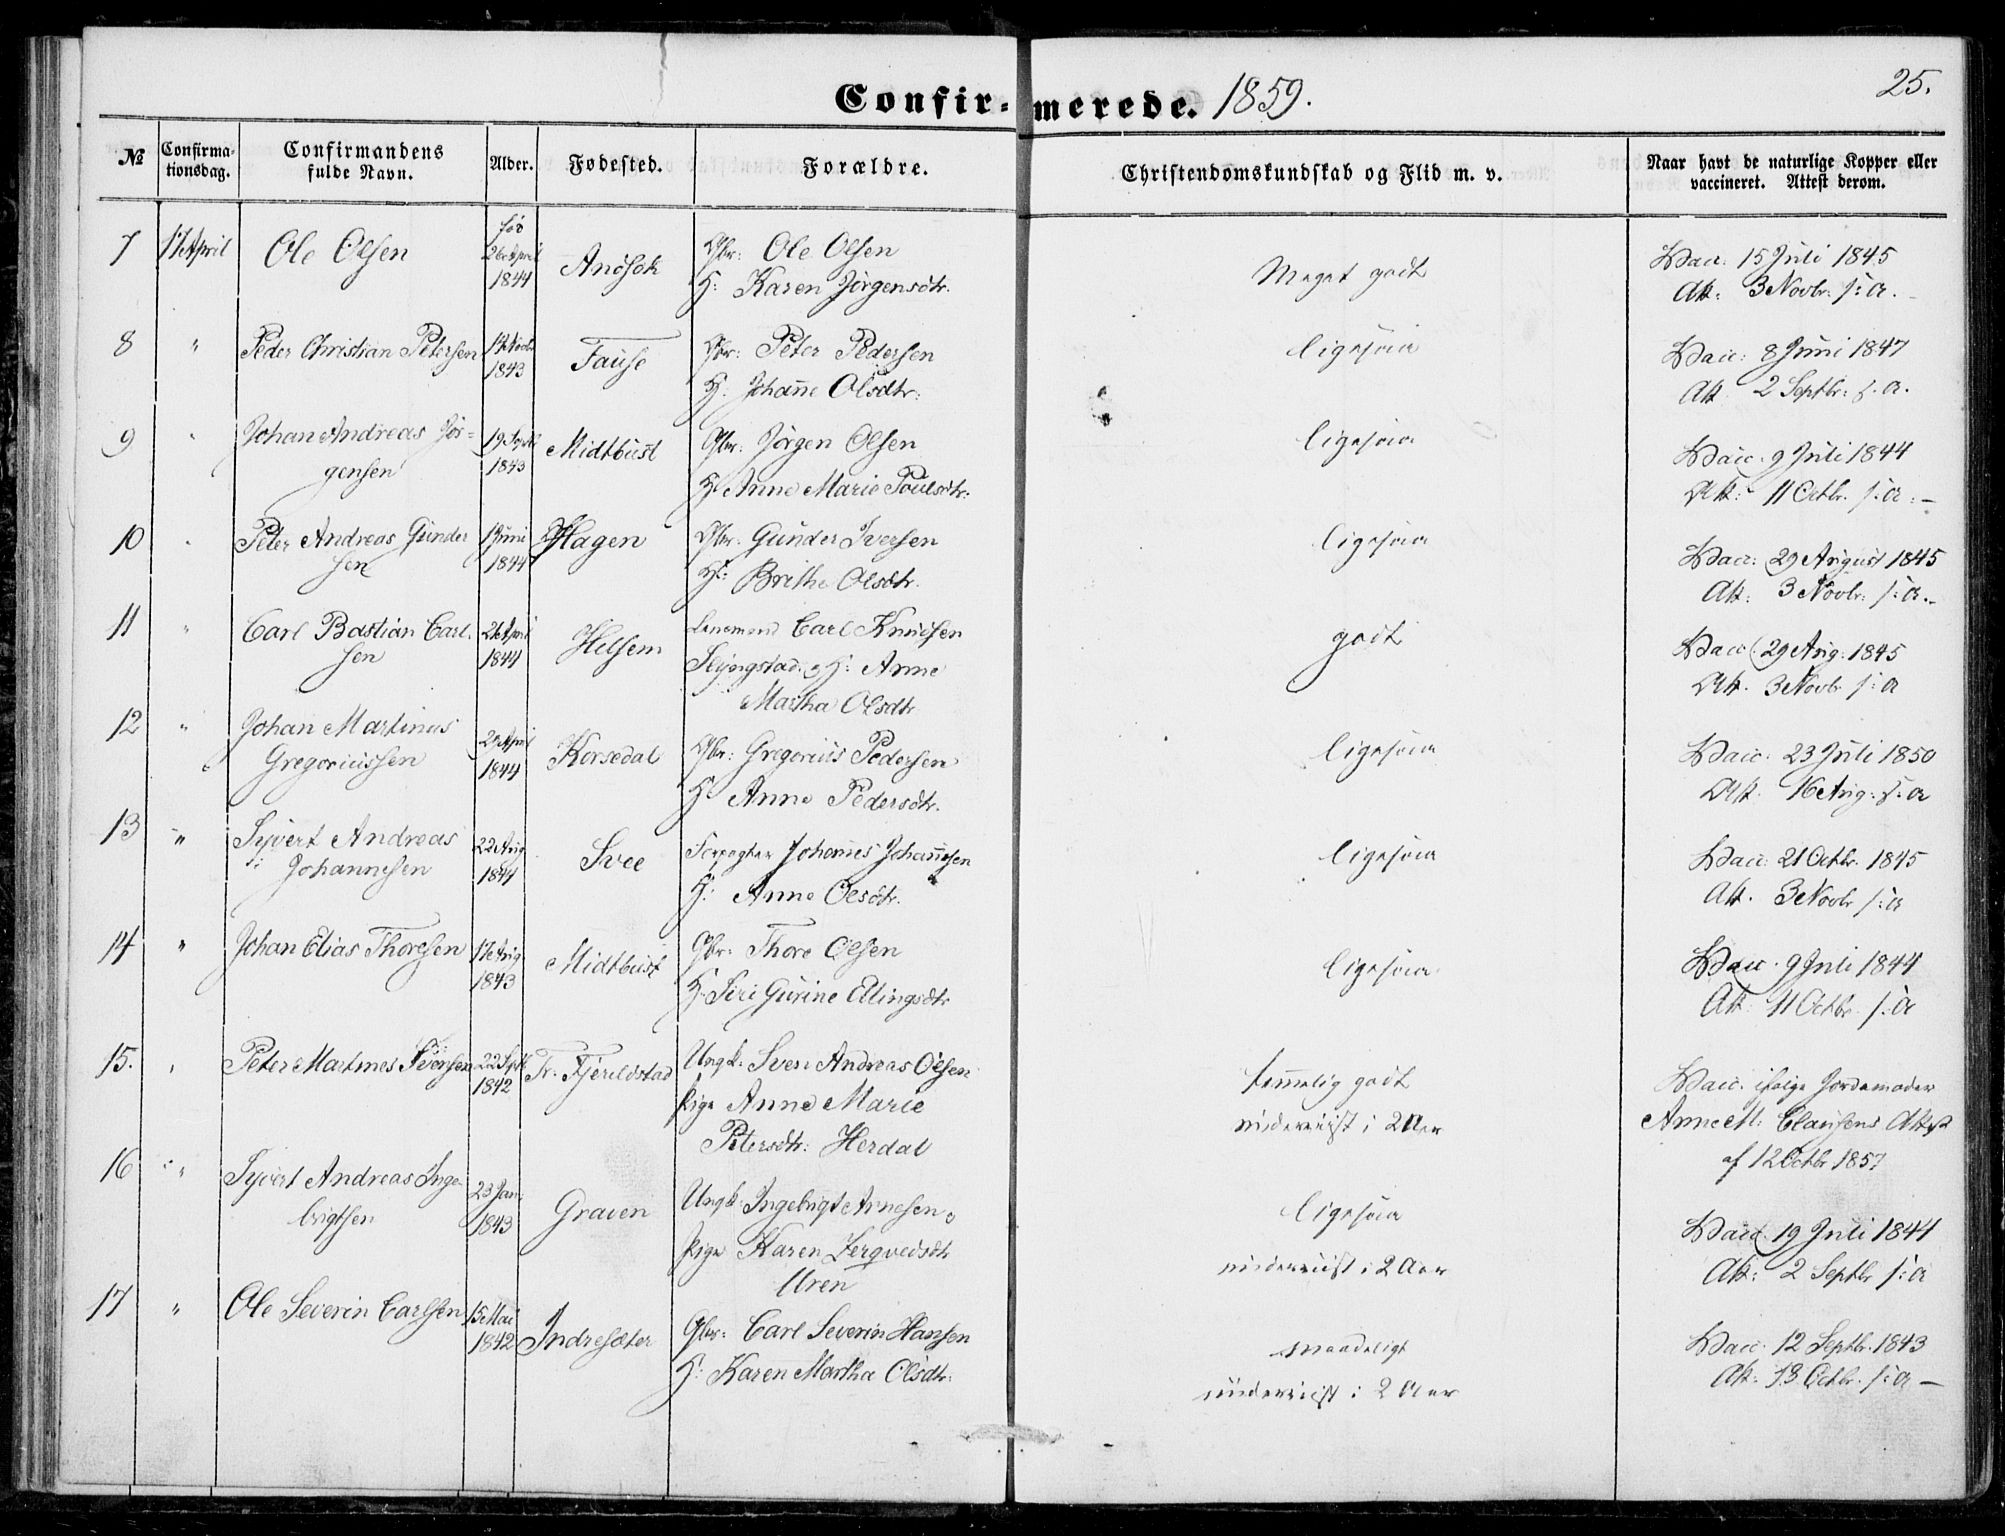 Confir-merede. 1859.
25.
No
Confirma-
tionsdag.
Confirmandens
fulde Navn.
Alder.
Fødested.
Forældre.
Christendomskundskab og Flid m. v.
Naar havt de naturlige Kopper eller
vaccineret. Attest derom.
7 17 April Ole Olsen
26 April
1844
Anøsok
Gbr: Ole Olsen
H: Karen Jørgensdtr.
Meget godt
Vacc. 15 Juli 1845
Att: 3 Novbr. s: a.
8 " Peder Christian Petersen
1843
Fause
Gbr: Peter Pedersen
H: Johanne Olsdtr.
ligesaa
Vacc: 8 Juni 1847
Att 2 Septbr: s. a.
9 " Johan Andreas Jør-
gensen
19 Septb
1843
Midtbust
Gbr: Jørgen Olsen
H: Anne Marie Poulsdtr.
ligesaa
Vacc. 9 Juli 1844
Att: 11 Octbr. s: a: -
10 " Peter Andreas Gunder
sen
Juni
1844
Hagen
Gbr: Gunder Iversen
H: Brithe Olsdtr.
ligesaa
Vacc: 29 August 1845
Att: 3 Novbr: s: a. -
11 " Carl Bastian Carl-
sen
26 April
1844
Helsem
Carl Knudsen
H: Anne
Martha Olsdtr
godt
Vacc: 29 Aug: 1845
Att. 3 Novbr s: a
12 " Johan Martinus
Gregoriussen
April
1844
Korsedal
Gbr: Gregorius Pedersen
H: Anne Pedersdtr.
ligesaa
Vacc: 23 Juli 1850
Att. 16 Aug: s. a
13 " Syvert Andreas
Johannesen
22 Aug
1844
Svee
Johannes Johannesen
H: Anne Olsdtr.
ligesaa
Vacc: 21 Octbr. 1845
Att. 3 Novbr s: a
14 " Johan Elias Thoresen
17 Aug
1843
Midtbust
Gbr: Thore Olsen
H: Siri Gurine Ellingsdtr
ligesaa
Vacc. 9 Juli 1844
Att. 11 Octbr s: a
15. " Peter Martines Svensen
22 Septb
1842
Tr. Fjereldstad
Ungk: Sven Andreas Olsen
Pige Anne Marie
Petersdtr: Herdal
temmelig godt
underviist i 2 Aar
Vacc. ifølge Jordemoder
Anne M: Clausens Attest
af 12 Octbr 1857
16 " Syvert Andreas Inge
brigtsen
23 Jan.
1843
Graven
Ungk. Ingebrigt Arnesen
Pige Karen
Uren
ligesaa
underviist i 2 Aar
Vacc. 19 Juli 1844
Att: 2 Septbr s: a
17 " Ole Severin Carlsen
15 Mai
1842
Indresæter
Gbr: Carl Severin Hansen
H: Karen Martha Olsdtr.
maadeligt
underviist i 2 Aar
Vacc. 12 Septbr. 1843
Att: 13 Octbr. s: a -